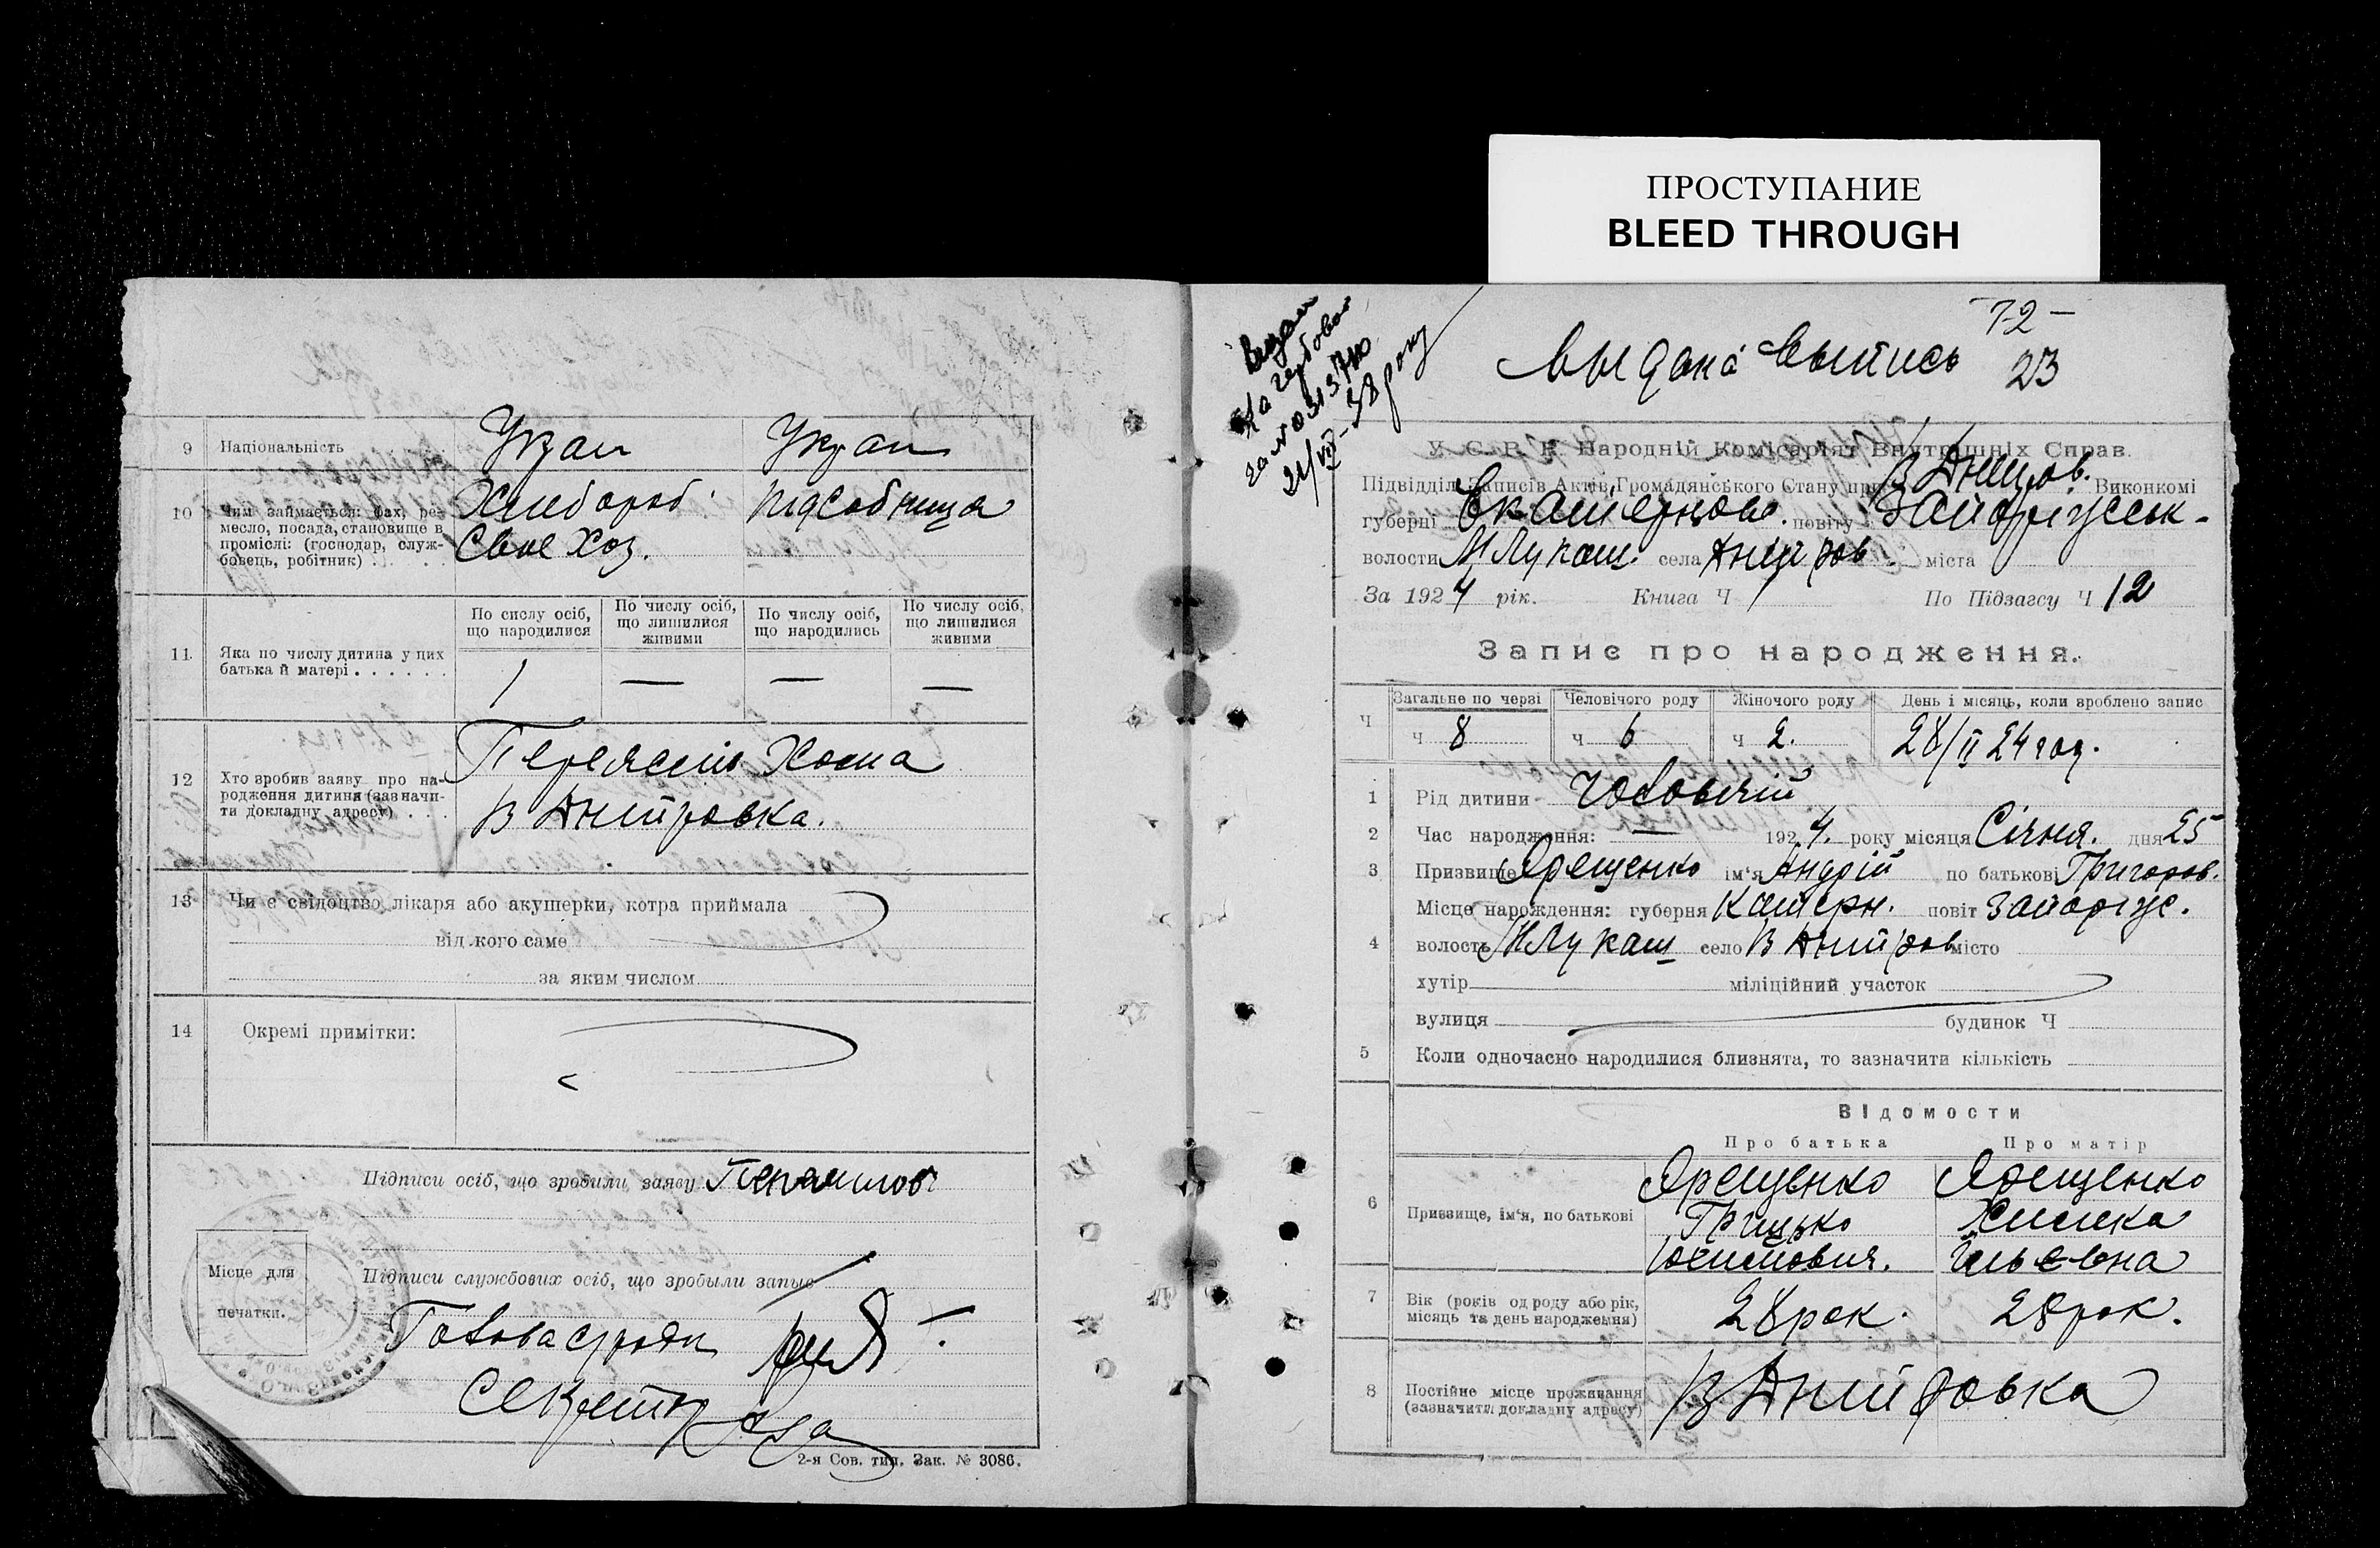 ПРОСТУПАНИЕ
BLEED THROUGH
9 Національність Украи Украи
10 Чим займається: фах, ре-
месло, посада, становище в
проміслі: (господар, служ-
бовець, робітник)
Хлибороб підсобница
Свое Хоз.
По сислу осіб, що народилися
По числу осіб, що лишилися живими
По числу осіб, що народились
По числу осіб, що лишилися живими
11 Яка по числу дитина у цих
батька й матері 1 — — —
12 Хто зробив заяву про на-
родження дитини (зазначи-
ти докладну адресу)
Хома
В Днипровка.
13 Чи є свідоцтво лікаря або акушерки, котра приймала
від кого саме
за яким числом
14 Окремі примітки:
Підписи осіб, що зробили заяву
Місце для
печатки.
Підписи службових осіб, що зробыли запыс
Голова сради
Секретр
2-я Сов. тип. Зак. № 3086.
72 —
23
Выдана выпись
за № 031370
21/VII-38 року
У. С. Р. Р. Народній Комісаріят Внутрішніх Справ.
Підвідділ Записів Актів Громадянського Стану при В Днипров. Виконкомі
губерні Екатерынослав. повіту Запоріжськ-
волости МЛукаш. села Днипров міста
За 1924 рік. Книга Ч По Підзагсу Ч 12
Запис про народження.
Загальне по черзі Человічого роду Жіночого роду День і місяць, коли зроблено запис
Ч ч 8 ч 6 ч 2. 28/II 24 год.
1 Рід дитини Чоловічій
2 Час народження: — 1924. року місяця Січня. дня 25
3 Призвище Ярещенко ім‘я Андрій по батькові Григоров.
Місце народження: губерня Катерн. повіт Запоріж.
4 волость МЛукаш село В Днипров місто
хутір міліційний участок
вулиця будинок Ч
5 Коли одночасно народилися близнята, то зазначити кількість
Відомости
Про батька Про матір
6 Призвище, ім‘я, по батькові
Ярещенко Ярещенко
Грицько Химка
Юхимович. Ильєвна
7 Вік (років од роду або рік,
місяць та день народження) 28 рок. 28 рок.
8 Постійне місце проживання
(зазначити докладну адресу) В Днипровка